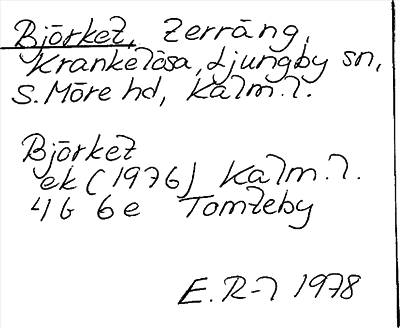 Björket, Terräng,
Krankelösa, Ljungby sn,
S. Möre hd, Kalm. l.
Björket
ek (1976) Kalm. l.
4G 6e Tomteby
E. R-n 1978